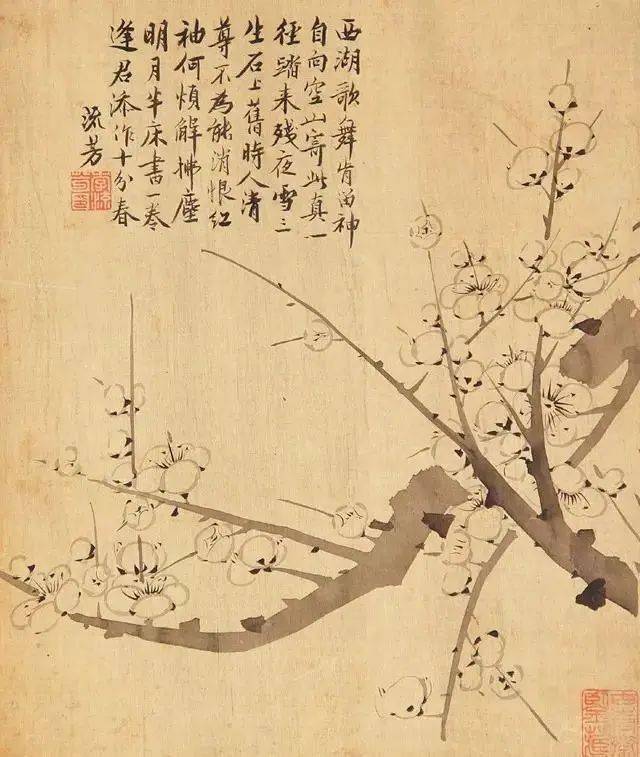 西湖歌舞肯留神
自向空山寄此真一
徑踏来残夜雪三
生石上舊時人清
尊不為能消恨紅
袖何煩解拂塵
明月半床書一卷
逢君添作十分春
流芳